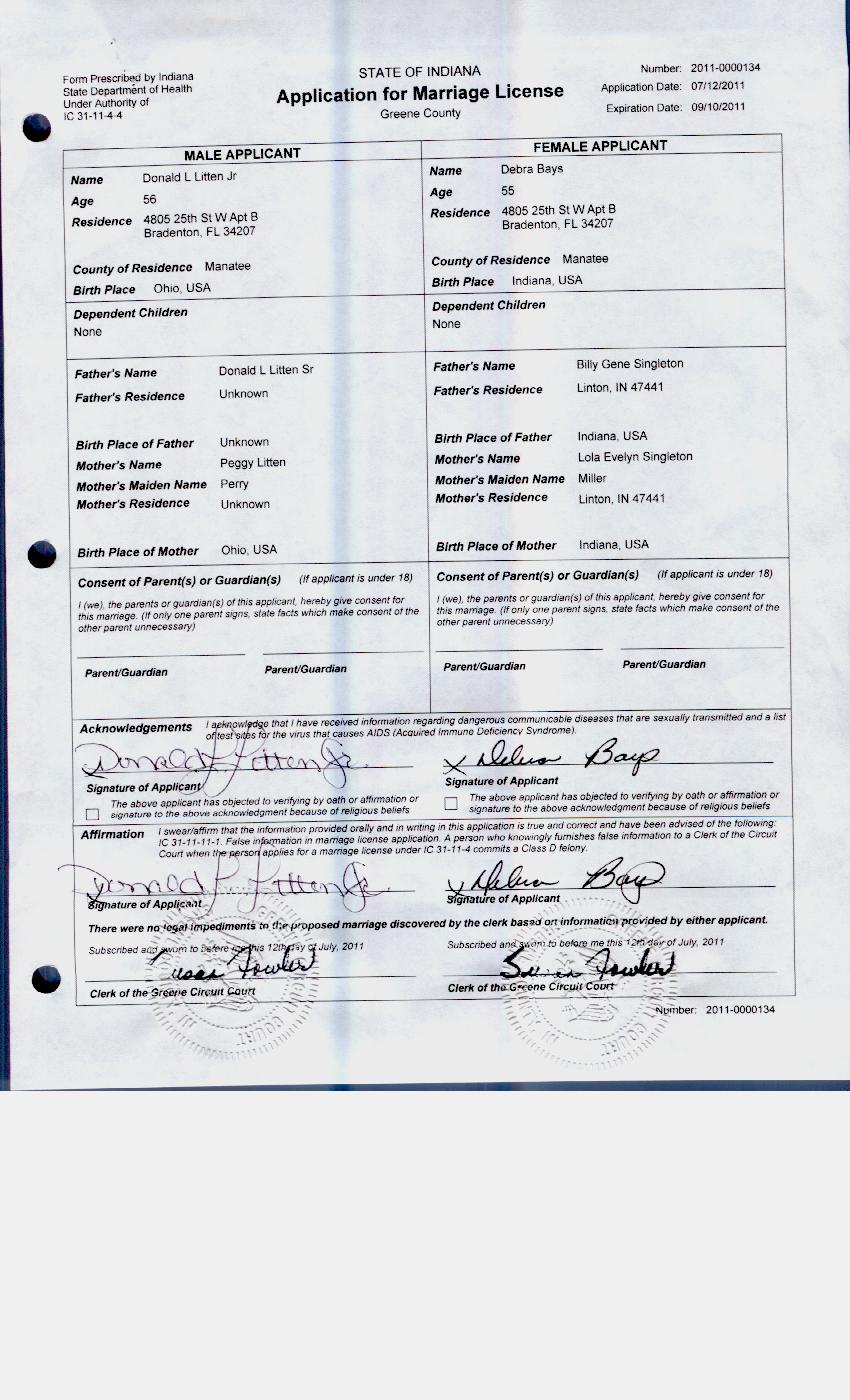 Form Prescribed by Indiana
State Department of Health
Under Authority of
IC 31-11-4-4
STATE OF INDIANA
Application for Marriage License
Greene County
Number: 2011-0000134
Application Date: 07/12/2011
Expiration Date: 09/10/2011
MALE APPLICANT
Name Donald L Litten Jr
Age 56
Residence 4805 25th St W Apt B
Bradenton, FL 34207
County of Residence Manatee
Birth Place Ohio, USA
Dependent Children
None
Father's Name Donald L Litten Sr
Father's Residence Unknown
Birth Place of Father Unknown
Mother's Name Peggy Litten
Mother's Maiden Name Perry
Mother's Residence Unknown
Birth Place of Mother Ohio, USA
Consent of Parent(s) or Guardian(s) (If applicant is under 18)
I (we), the parents or guardian(s) of this applicant, hereby give consent for
this marriage. (If only one parent signs, state facts which make consent of the
other parent unnecessary)
Parent/Guardian Parent/Guardian
FEMALE APPLICANT
Name Debra Bays
Age 55
Residence 4805 25th St W Apt B
Bradenton, FL 34207
County of Residence Manatee
Birth Place Indiana, USA
Dependent Children
None
Father's Name Billy Gene Singleton
Father's Residence Linton, IN 47441
Birth Place of Father Indiana, USA
Mother's Name Lola Evelyn Singleton
Mother's Maiden Name Miller
Mother's Residence Linton, IN 47441
Birth Place of Mother Indiana, USA
Consent of Parent(s) or Guardian(s) (If applicant is under 18)
I (we), the parents or guardian(s) of this applicant, hereby give consent for
this marriage. (If only one parent signs, state facts which make consent of the
other parent unnecessary)
Parent/Guardian Parent/Guardian
Acknowledgements I acknowledge that I have received information regarding dangerous communicable diseases that are sexually transmitted and a list
of test sites for the virus that causes AIDS (Acquired Immune Deficiency Syndrome).
Donald L Litten Jr. X Debra Bays
Signature of Applicant Signature of Applicant
The above applicant has objected to verifying by oath or affirmation or
signature to the above acknowledgment because of religious beliefs
The above applicant has objected to verifying by oath or affirmation or
signature to the above acknowledgment because of religious beliefs
Affirmation I swear/affirm that the information provided orally and in writing in this application is true and correct and have been advised of the following:
IC 31-11-11-1. False information in marriage license application. A person who knowingly furnishes false information to a Clerk of the Circuit
Court when the person applies for a marriage license under IC 31-11-4 commits a Class D felony.
Donald L Litten Jr. X Debra Bays
Signature of Applicant Signature of Applicant
There were no legal impediments to the proposed marriage discovered by the clerk based on information provided by either applicant.
Subscribed and sworn to before me this 12th day of July, 2011 Subscribed and sworn to before me this 12th day of July, 2011
Susan Fowler Susan Fowler
Clerk of the Greene Circuit Court Clerk of the Greene Circuit Court
Number: 2011-0000134